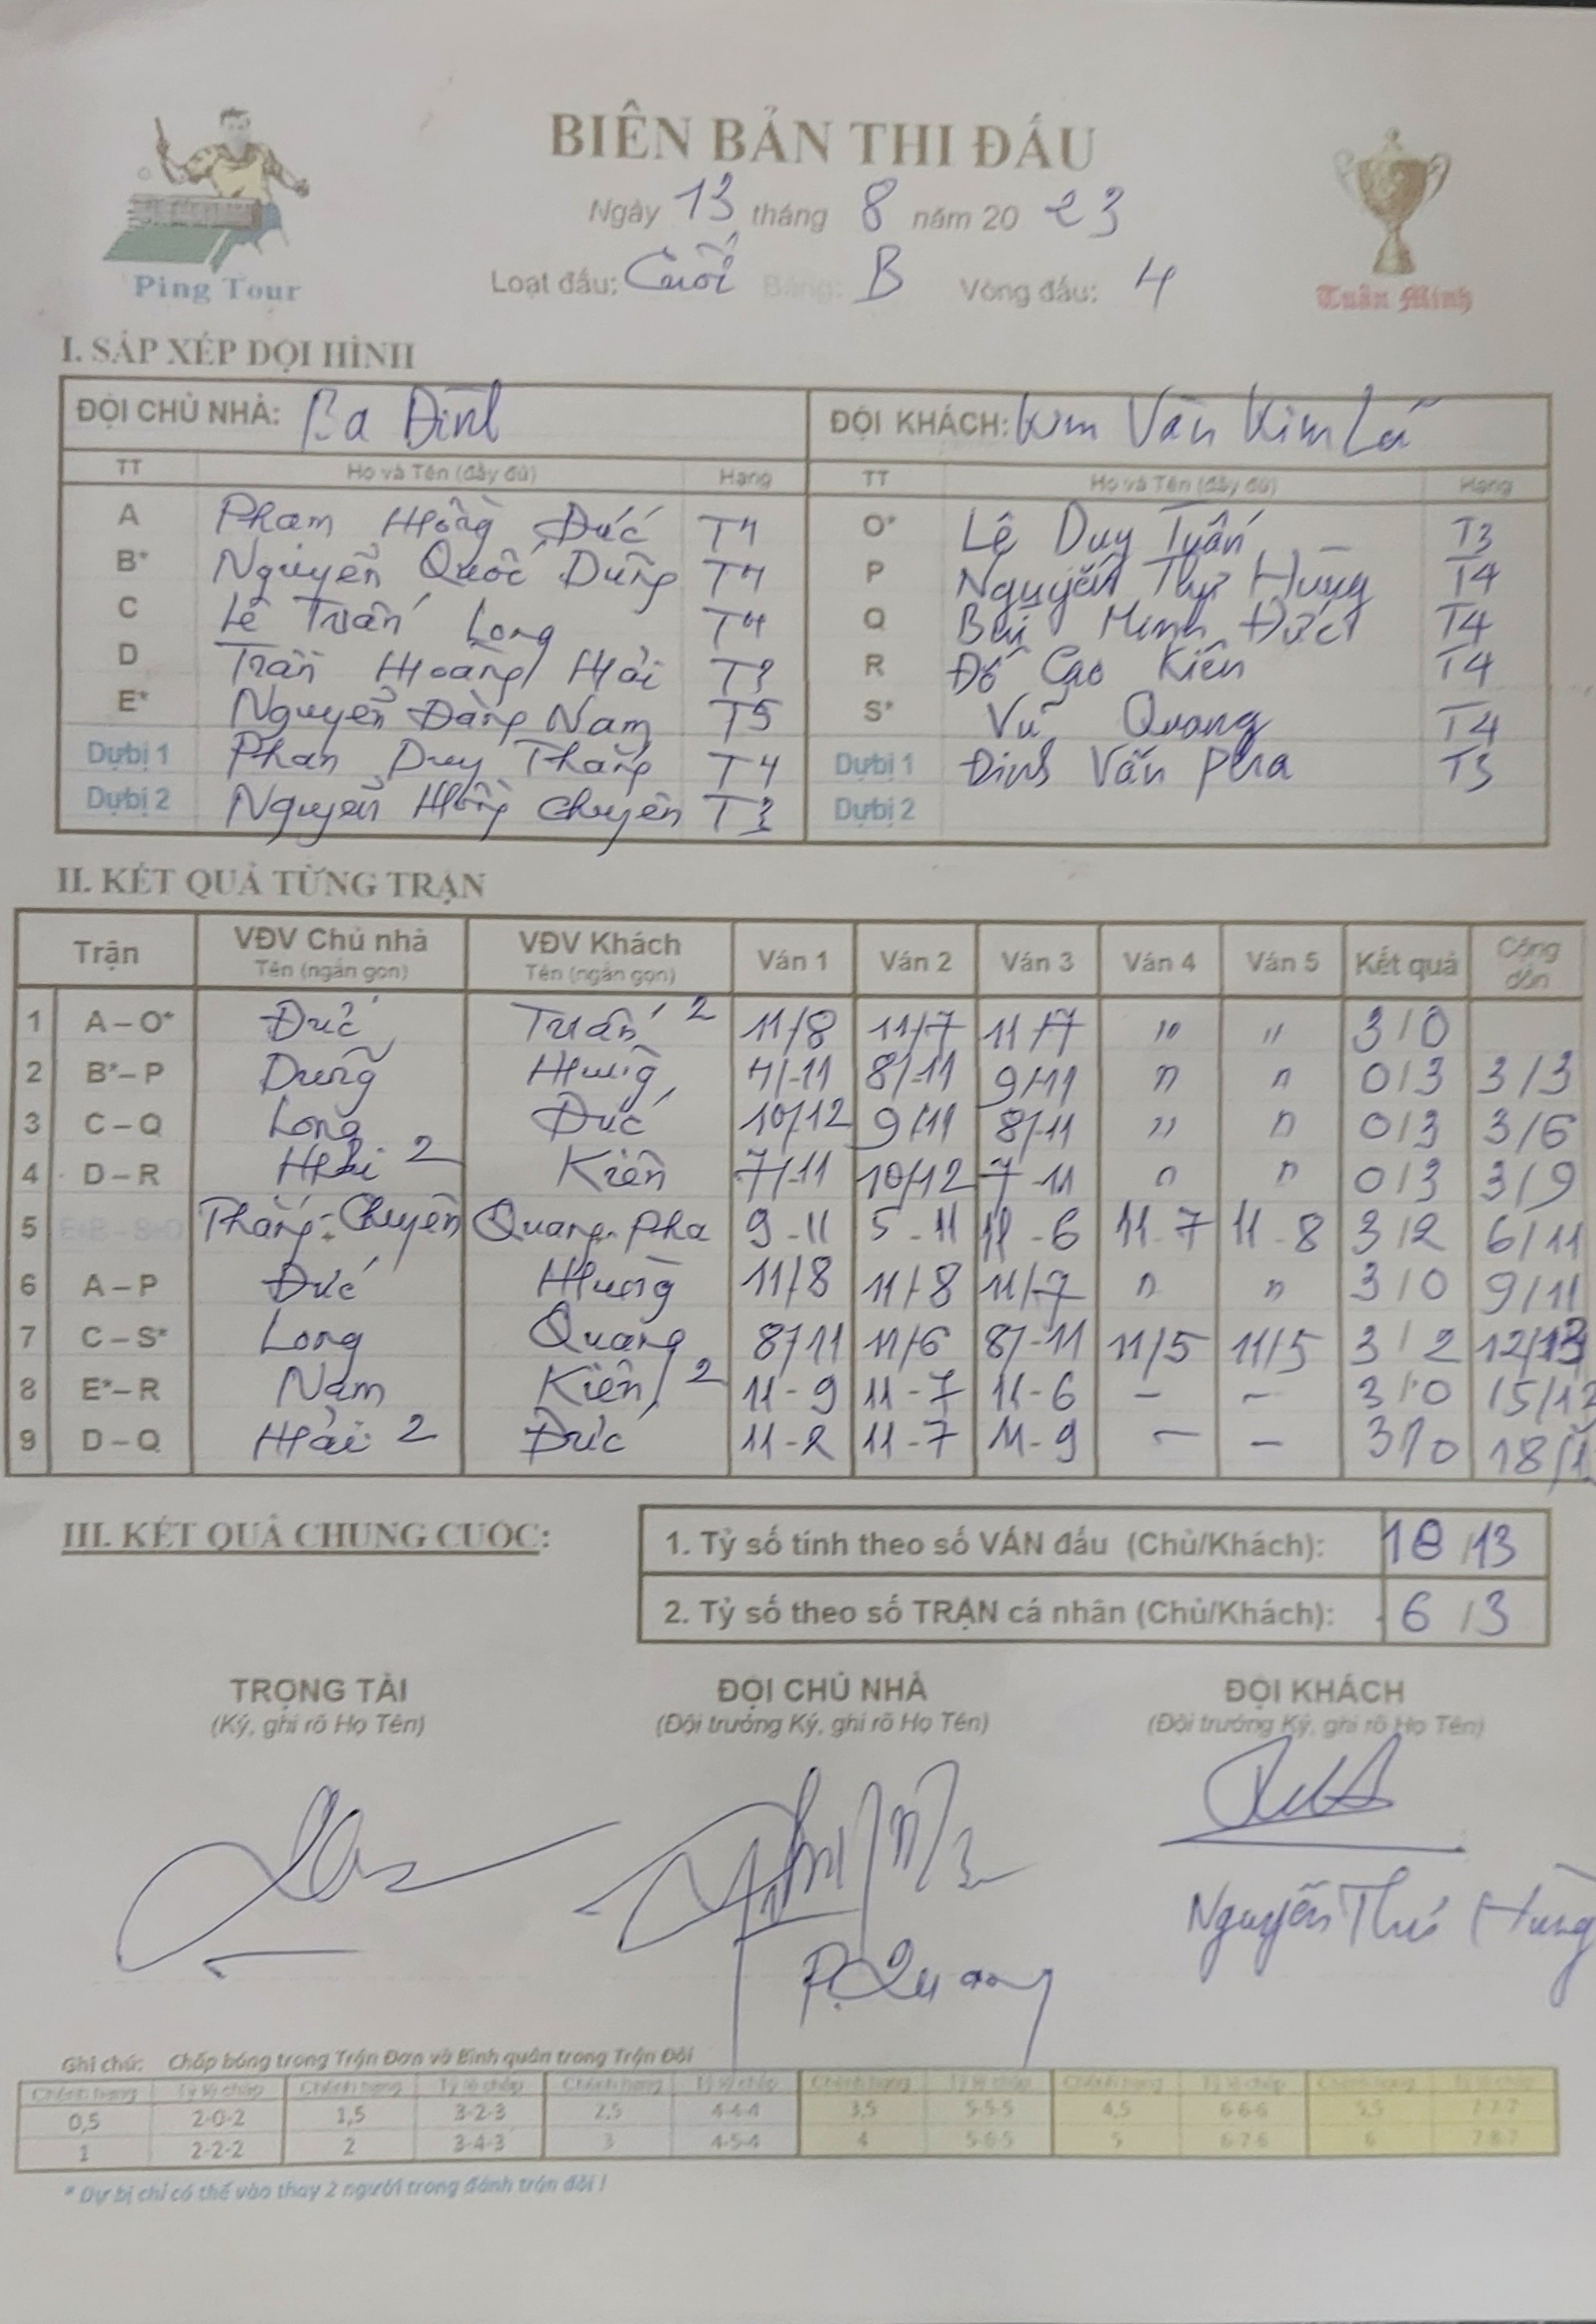 BIÊN BẢN THI ĐẤU
Ngày 13 tháng 8 năm 20 23
Ping Tour
Loạt đấu: Cuối Bảng: B Vòng đấu: 4
Tuấn Minh
I. SẮP XẾP ĐỘI HÌNH
ĐỘI CHỦ NHÀ: Ba Đình ĐỘI KHÁCH: Kim Vân Kim Lũ
TT Họ và Tên (đầy đủ) Hạng TT Họ và Tên (đầy đủ) Hạng
A Phạm Hồng Đức T4 O* Lê Duy Tuấn T3
B* Nguyễn Quốc Dũng T4 P Nguyễn Thự Hùng T4
C Lê Tuấn Long T4 Q Bùi Minh Đức T4
D Trần Hoàng Hải T3 R Đỗ Cao Kiên T4
E* Nguyễn Đăng Nam T5 S* Vũ Quang T4
Dự bị 1 Phan Duy Thắng T4 Dự bị 1 Đinh Văn Pha T3
Dự bị 2 Nguyễn Hồng Chuyên T3 Dự bị 2
II. KẾT QUẢ TỪNG TRẬN
Trận VĐV Chủ nhà Tên (ngắn gọn) VĐV Khách Tên (ngắn gọn) Ván 1 Ván 2 Ván 3 Ván 4 Ván 5 Kết quả Cộng dồn
1 A – O* Đức Tuấn 2 11/8 11/7 11/7 " " 3/0
2 B*– P Dũng Hùng 7/-11 8/-11 9/11 " " 0/3 3/3
3 C – Q Long Đức 10/12 9/11 8/11 " " 0/3 3/6
4 D – R Hải 2 Kiên 7/-11 10/12 7-11 " " 0/3 3/9
5 E+B – S+O Thắng - Chuyên Quang - Pha 9-11 5-11 11-6 11-7 11-8 3/2 6/11
6 A – P Đức Hùng 11/8 11/8 11/7 " " 3/0 9/11
7 C – S* Long Quang 8/11 11/6 8/-11 11/5 11/5 3/2 12/13
8 E*– R Nam Kiên 2 11-9 11-7 11-6 – – 3/0 15/13
9 D – Q Hải 2 Đức 11-2 11-7 11-9 – – 3/0 18/
III. KẾT QUẢ CHUNG CUỘC:
1. Tỷ số tính theo số VÁN đấu (Chủ/Khách): 18/13
2. Tỷ số theo số TRẬN cá nhân (Chủ/Khách): 6/3
TRỌNG TÀI ĐỘI CHỦ NHÀ ĐỘI KHÁCH
(Ký, ghi rõ Họ Tên) (Đội trưởng Ký, ghi rõ Họ Tên) (Đội trưởng Ký, ghi rõ Họ Tên)
P. Quang Nguyễn Thự Hùng
Ghi chú: Chấp bóng trong Trận Đơn và Bình quân trong Trận Đôi
Chênh hạng Tỷ lệ chấp Chênh hạng Tỷ lệ chấp Chênh hạng Tỷ lệ chấp Chênh hạng Tỷ lệ chấp Chênh hạng Tỷ lệ chấp Chênh hạng Tỷ lệ chấp
0,5 2-0-2 1,5 3-2-3 2,5 4-4-4 3,5 5-5-5 4,5 6-6-6 5,5 7-7-7
1 2-2-2 2 3-4-3 3 4-5-4 4 5-6-5 5 6-7-6 6 7-8-7
* Dự bị chỉ có thể vào thay 2 người trong đánh trận đôi !